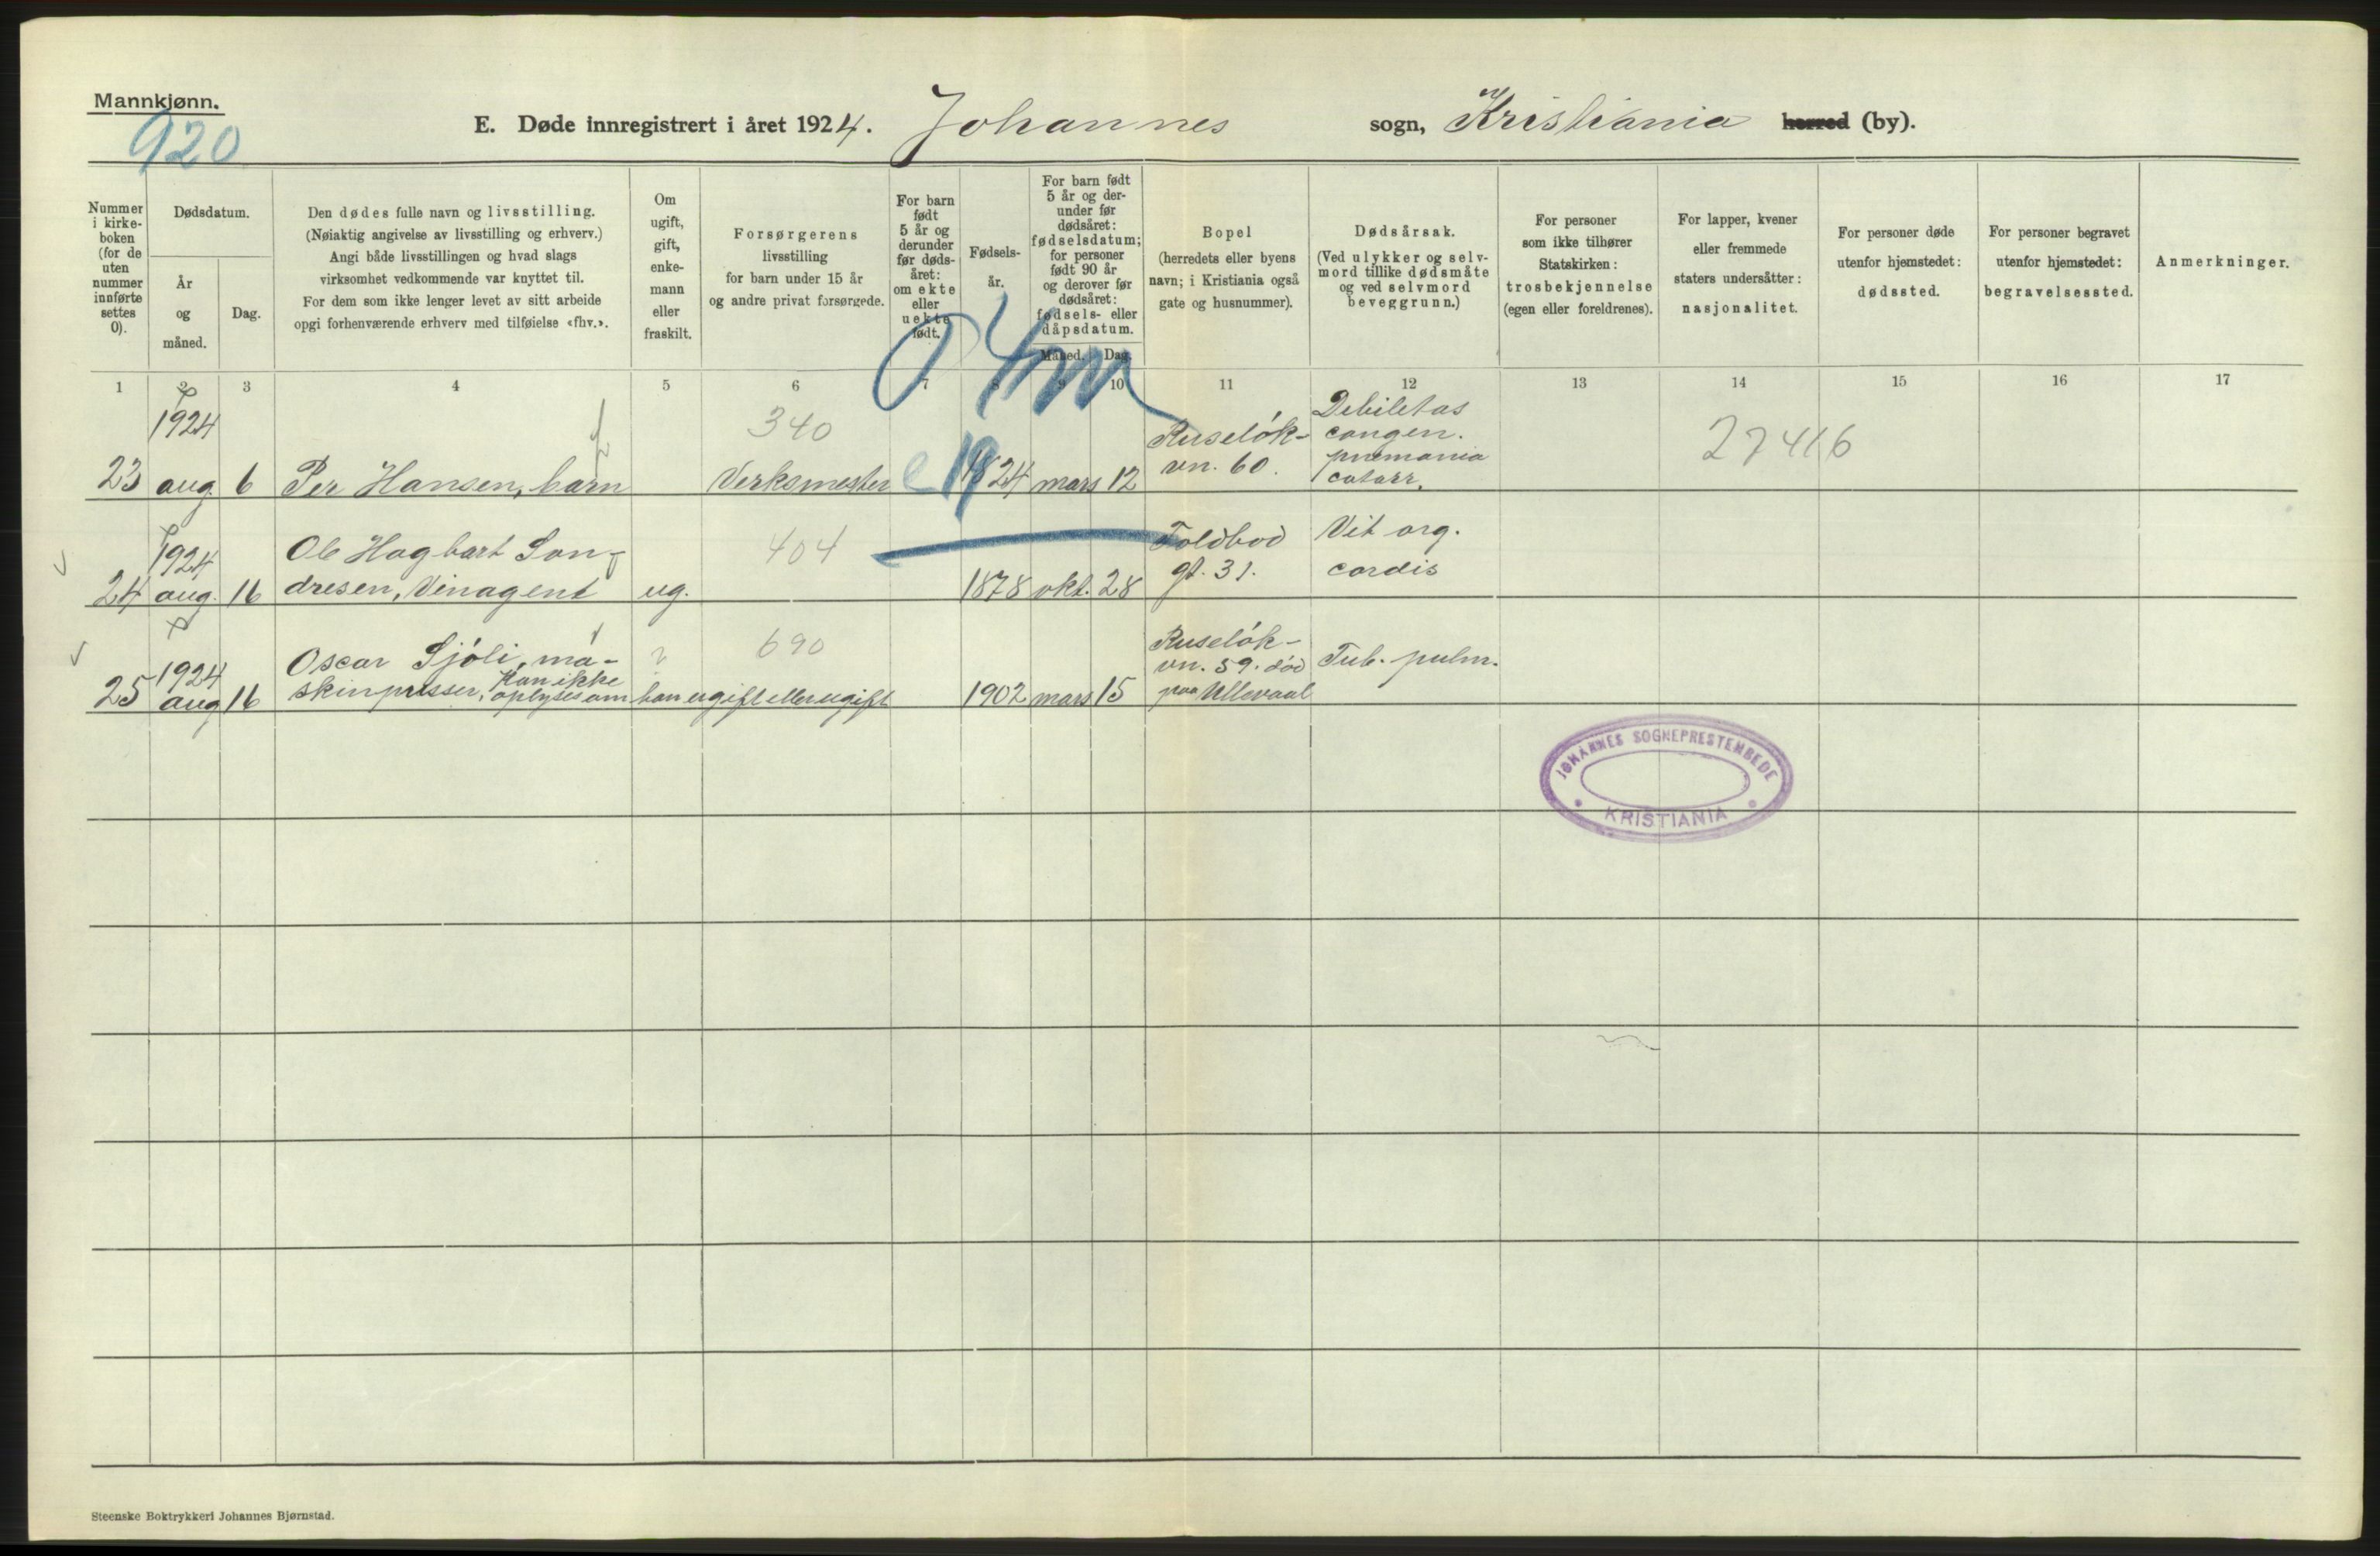 Mannkjønn.
920
E. Døde innregistrert i året 1924. Johannes sogn, Kristiania herred (by).
Nummer i kirke- boken (for de uten nummer innførte settes 0).
Dødsdatum.
År og måned.
Dag.
Den dødes fulle navn og livsstilling.
(Nøiaktig angivelse av livsstilling og erhverv.)
Angi både livsstillingen og hvad slags
virksomhet vedkommende var knyttet til.
For dem som ikke lenger levet av sitt arbeide
opgi forhenværende erhverv med tilføielse «fhv.».
Om ugift, gift, enke- mann eller fraskilt.
Forsørgerens
livsstilling
for barn under 15 år
og andre privat forsørgede.
For barn født 5 år og derunder før døds- året: om ekte eller uekte født.
Fødsels- år.
For barn født 5 år og der- under før dødsåret: fødselsdatum; for personer født 90 år og derover før dødsåret: fødsels- eller dåpsdatum.
Måned. Dag.
Bopel
(herredets eller byens
navn; i Kristiania også
gate og husnummer).
Dødsårsak.
(Ved ulykker og selv-
mord tillike dødsmåte
og ved selvmord
beveggrunn.)
For personer
som ikke tilhører
Statskirken:
trosbekjennelse
(egen eller foreldrenes).
For lapper, kvener
eller fremmede
staters undersåtter:
nasjonalitet.
For personer døde
utenfor hjemstedet:
dødssted.
For personer begravet
utenfor hjemstedet:
begravelsessted.
Anmerkninger.
1 2 3 4 5 6 7 8 9 10 11 12 13 14 15 16 17
23 1924 aug. 6 Per Hansen, barn 340 Verksmester e 1924 mars 12
Ruseløk-
vn. 60.
Debiletas
congen.
pnemonia
catarr.
27416
24 1924 aug. 16
Ole Hagbart Son-
dresen, Vinagent ug. 404 1878 okt. 28
Toldbod
gt. 31.
Vit org.
cordis
25 1924 aug 16
Oscar Sjøli, ma-
skinpusser, Kan ikke
oplyses om han er gift eller ugift ? 690 1902 mars 15
Ruseløk-
vn. 59. død
paa Ullevaal
Tub. pulm.
JOHANNES SOGNEPRESTEMBEDE
KRISTIANIA
Steenske Boktrykkeri Johannes Bjørnstad.